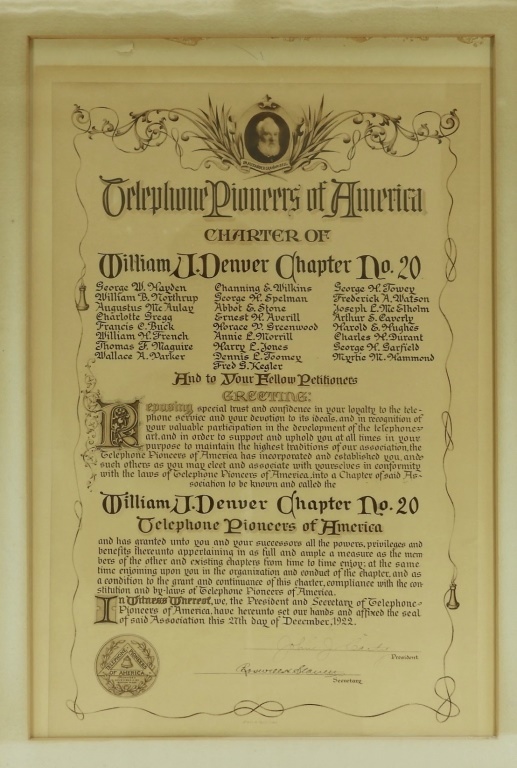 Telephone Pioneers of America
CHARTER OF
William J. Denver Chapter No. 20
George W. Hayden Channing E. Wilkins George H. Towey
William B. Northrup George H. Spelman Frederick A. Watson
Augustus McAulay Abbot E. Stone Joseph L. McElholm
Charlotte Gregg Ernest H. Averill Arthur S. Caverly
Francis C. Buck Horace V. Greenwood Harold E. Hughes
William H. French Annie L. Morrill Charles H. Durant
Thomas F. Maguire Harry L. Jones George H. Garfield
Wallace A. Parker Dennis L. Toomey Myrtie M. Hammond
Fred S. Kegler
And to Your Fellow Petitioners
GREETING:
Reposing special trust and confidence in your loyalty to the tele-
phone service and your devotion to its ideals, and in recognition of
your valuable participation in the development of the telephone
art, and in order to support and uphold you at all times in your
purpose to maintain the highest traditions of our association, the
Telephone Pioneers of America has incorporated and established you, and
such others as you may elect and associate with yourselves in conformity
with the laws of Telephone Pioneers of America, into a Chapter of said As-
sociation to be known and called the
William J. Denver Chapter No. 20
Telephone Pioneers of America
and has granted unto you and your successors all the powers, privileges and
benefits thereunto appertaining in as full and ample a measure as the mem
bers of the other and existing chapters from time to time enjoy; at the same
time enjoining upon you in the organization and conduct of the chapter, and as
a condition to the grant and continuance of this charter, compliance with the con-
stitution and by-laws of Telephone Pioneers of America.
In Witness Whereof, we, the President and Secretary of Telephone
Pioneers of America, have hereunto set our hands and affixed the seal
of said Association this 27th day of December, 1922.
President
Secretary
TELEPHONE PIONEERS
OF AMERICA